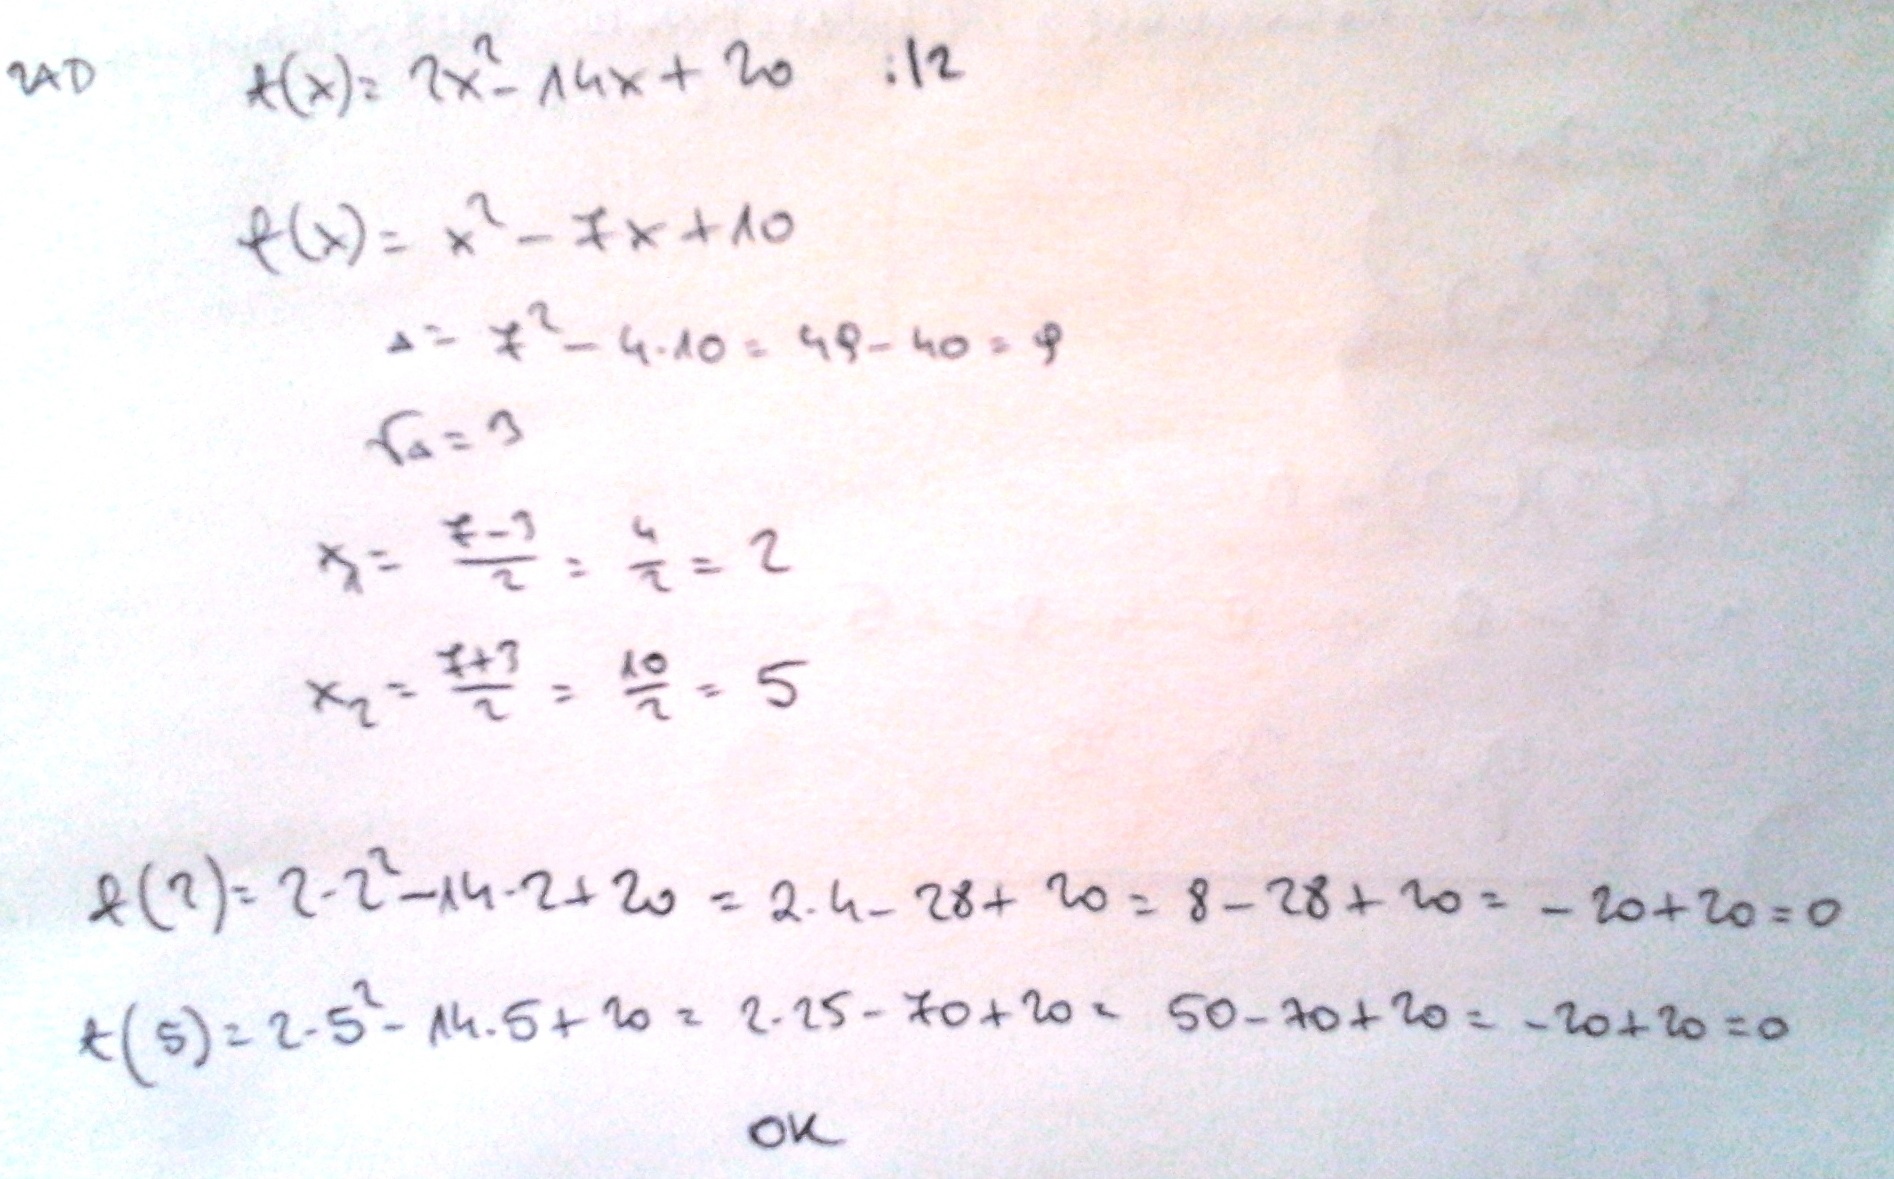 ZAD f(x)= 2x²-14x+20 :/2
f(x)= x²-7x+10
Δ= 7²-4·10= 49-40=9
√Δ=3
x₁= 7-3/2 = 4/2 = 2
x₂= 7+3/2 = 10/2 = 5
f(2)= 2·2²-14·2+20 = 2·4-28+20= 8-28+20= -20+20=0
f(5)=2·5²-14·5+20= 2·25-70+20= 50-70+20= -20+20=0
OK